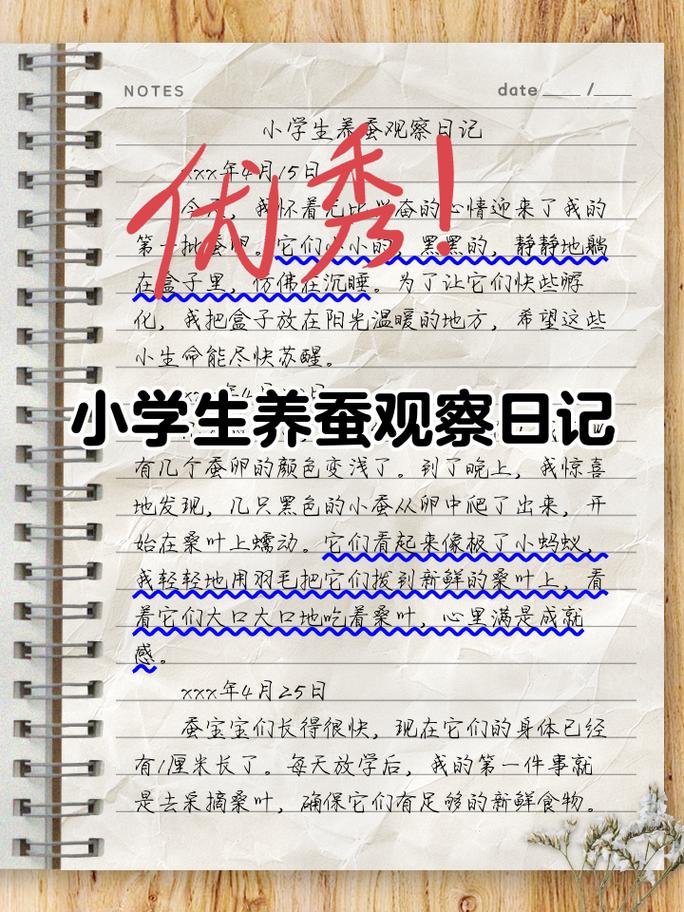 NOTES date ___ /___
小学生养蚕观察日记
xxx年4月15日
今天，我怀着无比兴奋的心情迎来了我的
第一批蚕卵。它们小小的，黑黑的，静静地躺
在盒子里，仿佛在沉睡。为了让它们快些孵
化，我把盒子放在阳光温暖的地方，希望这些
小生命能尽快苏醒。
优秀！
小学生养蚕观察日记
有几个蚕卵的颜色变浅了。到了晚上，我惊喜
地发现，几只黑色的小蚕从卵中爬了出来，开
始在桑叶上蠕动。它们看起来像极了小蚂蚁，
我轻轻地用羽毛把它们拨到新鲜的桑叶上，看
着它们大口大口地吃着桑叶，心里满是成就
感。
xxx年4月25日
蚕宝宝们长得很快，现在它们的身体已经
有1厘米长了。每天放学后，我的第一件事就
是去采摘桑叶，确保它们有足够的新鲜食物。